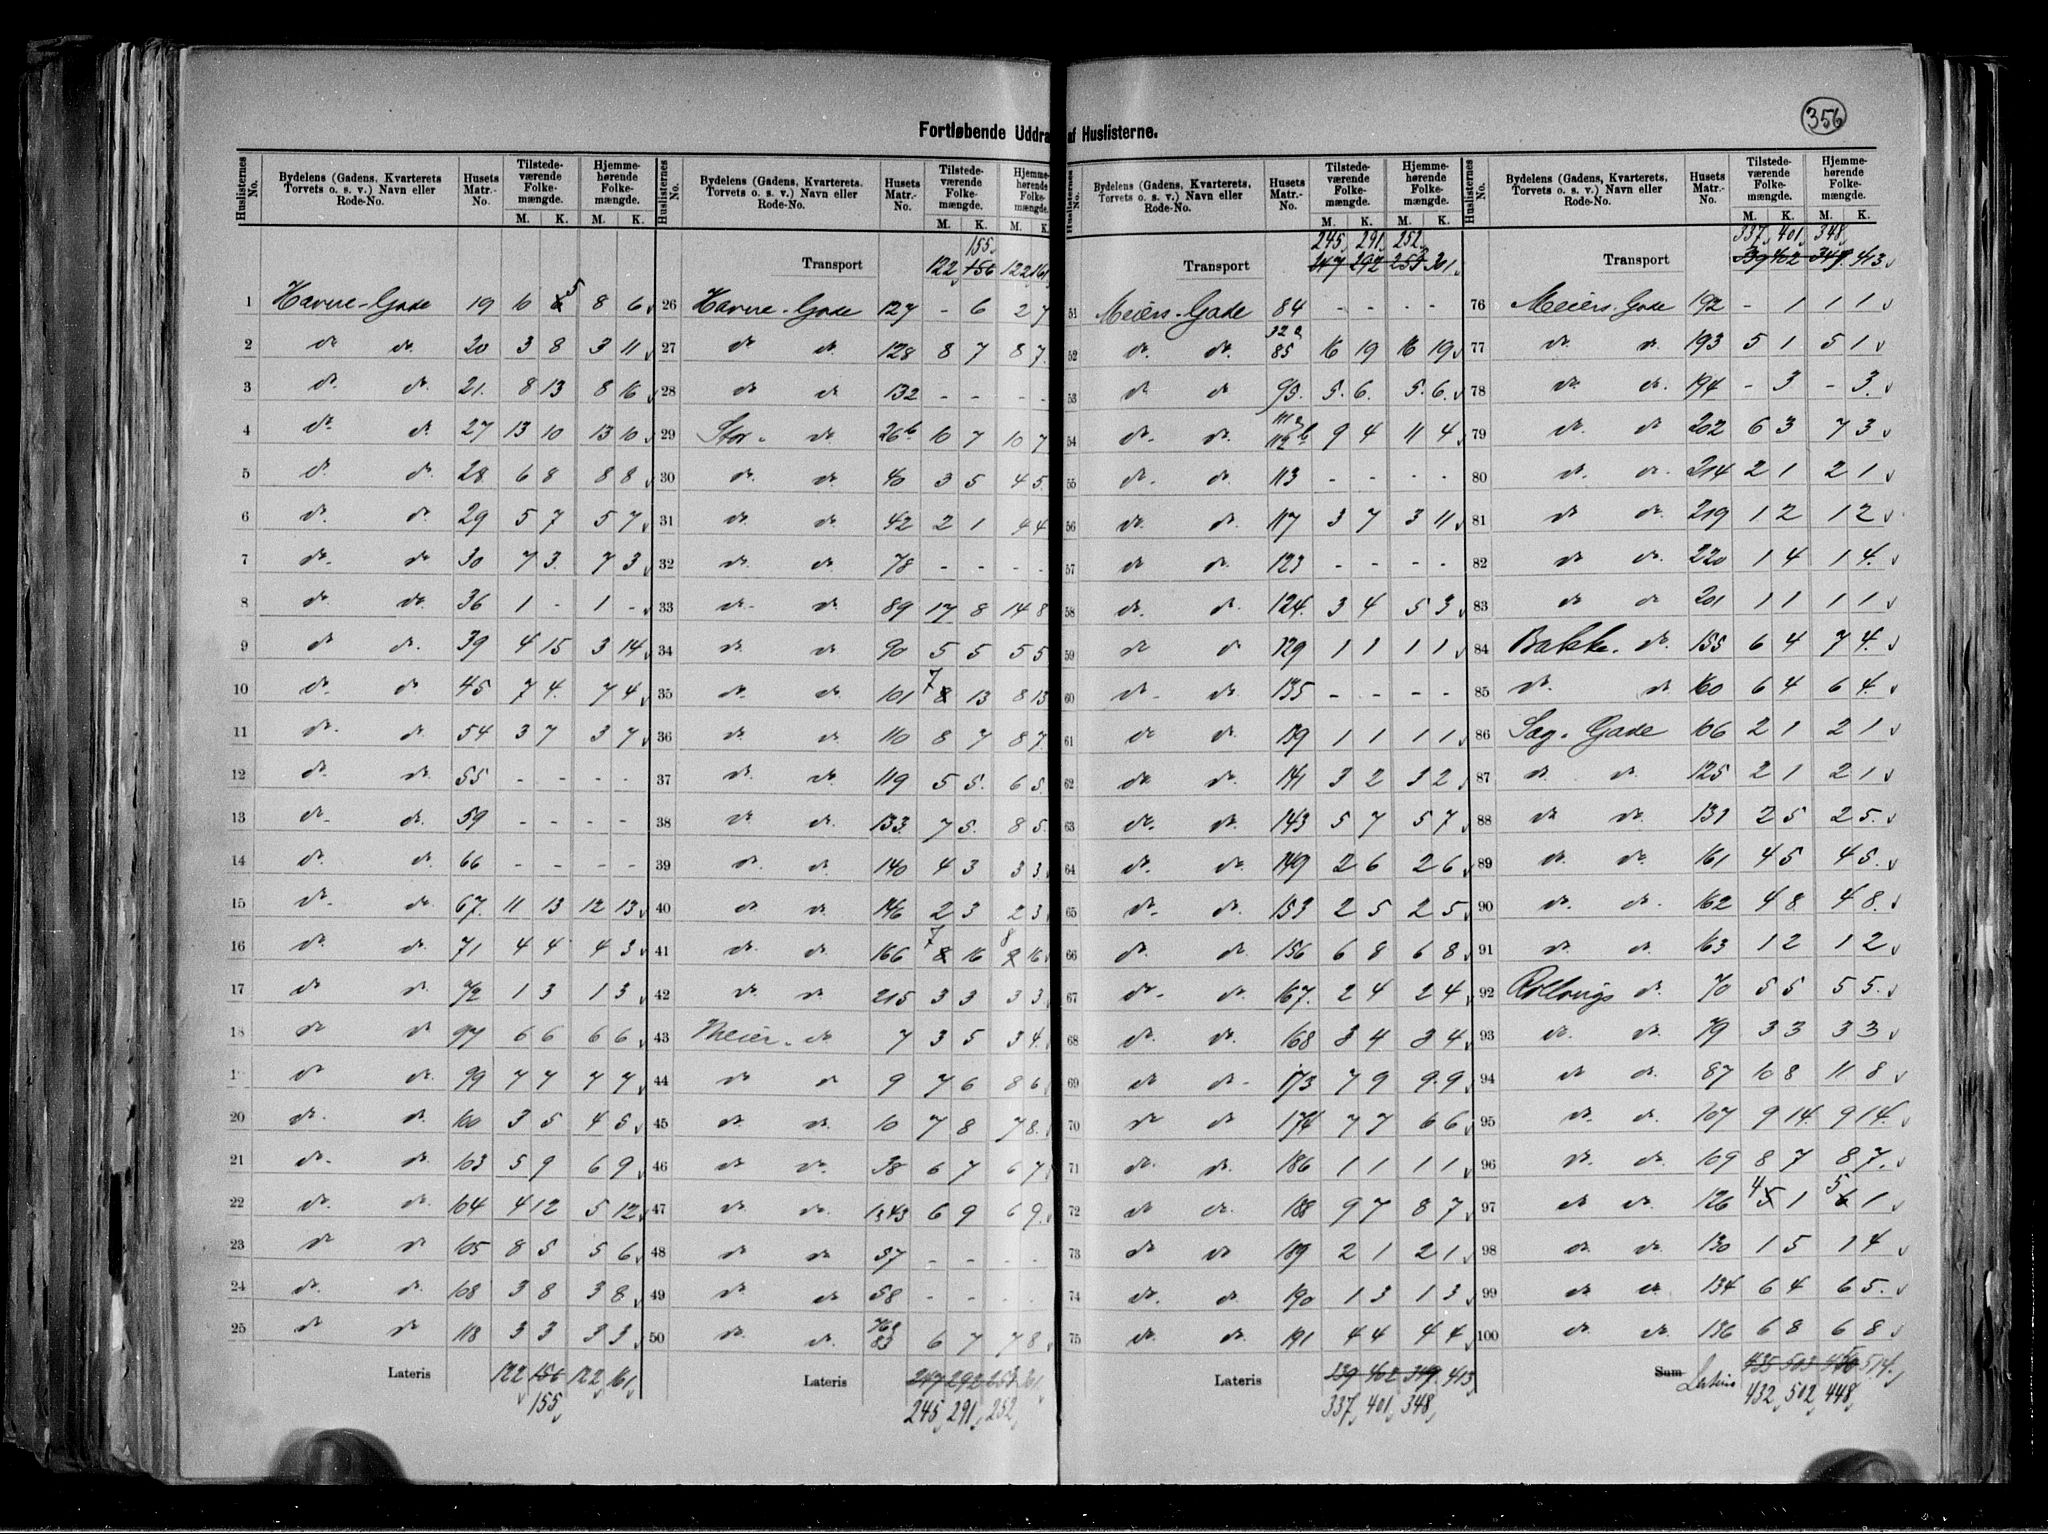 356
Fortløbende Uddra af Huslisterne.
Huslisternes No. | Bydelens (Gadens, Kvarterets, Torvets o. s. v.) Navn eller Rode-No. | Husets Matr.-No. | Tilstede-værende Folke-mængde. M. K. | Hjemme-hørende Folke-mængde. M. K.
1 Havne-Gade 19 10 6 5 8 6
2 do do. 20 3 8 3 11
3 do. do. 21. 8 13 8 16
4 do. do. 27 13 10 13 10
5 do. do. 28 6 8 8 8
6 do. do. 29 5 7 5 7
7 do. do 30 7 3. 7 3
8 do. do. 36 1 - 1 -
9 do do. 39 4 15 3 14
10 do. do 45 7 4. 7 4
11 do. do. 54 3 7 3 7
12 do. do. 55 - - - -
13 do. do. 59 - - - -
14 do. do. 66 - - - -
15 do. do. 67. 11 13 12 13
16 do. do. 71 4 4 4 3
17 do do. 72 1 3 1 3
18 do do 97 6 6 6 6
1 do do. 99 7 7 7 7
20 do. do. 100 3 5 4 5
21 do. do. 103 5 9 6 9
22 do. do. 104 4 12 5 12
23 do do 105 8 5 5 6
24 do. do. 108 3 8 3 8
25 do do 118 3 3 3 3
Lateris 122 156 122 161
155
155
Transport 122 156 122 161
26 Havne-Gade 127 - 6 2 7
27 do do. 128 8 7 8 7.
28 do. do 132 - - - -
29 Stor- do. 26b 10 7 10 7
30 do. do. 40 3 5 4 5
31 do. do. 42 2 1 4 4
32 do. do. 78 - - - -
33 do- do 89 17 8 14 8
34 do. do. 90 5 5 5 5
35 do. do. 101 7 8 13 8 13
36 do. do. 110 8 7 8 7
37 do. do. 119 5 5. 6 5.
38 do do. 133. 7 5. 8 5.
39 do. do. 140 4 3 3 3
40 do do. 146 2 3 2 3
41 do. do. 166 7 8 16 8 9 16
42 do. do 215 3 3 3 3
43 Meier- do 7 3 5 3 4.
44 do do 9 7 6 8 6
45 do. do. 10 7 8 7 8.
46 do do. 38 6 7 6 7
47 do. do. 43 6 9 6 9.
48 do do 57 - - - -
49 do. do 58 - - - -
50 do. do. 76a 83 6 7 7 8
Lateris 247 292 253 301
245 291 252
245 291 252
Transport 247 292 253 301
51 Meiers-Gade 84 - - - -
52 do. do. 32a 85 16 19 16 19
53 do do 93. 5. 6. 5. 6.
54 do. do. 111a 112b 9 4 11 4
55 do- do. 113 - - - -
56 do. do. 117 3 7 3 11
57 do do. 123 - - - -
58 do. do. 124. 3 4 5 3
59 do do 129 1 1 1 1
60 do- do 135 - - - -
61 do do 139 1 1 1 1
62 do do. 141 3 2 3 2
63 do. do. 143 5 7 5 7
64 do. do. 149 2 6 2 6
65 do. do. 153 2 5 2 5
66 do. do 156 6 8 6 8
67 do- do 167. 2 4 2 4
68 do. do. 168 3 4 3 4
69 do do- 173 7 9 9 9
70 do do 174 7 7 6 6
71 do. do. 186 1 1 1 1
72 do do. 188 9 7 8 7
73 do do 189 2 1 2 1
74 do. do. 190 1 3 1 3
75 do do. 191 4 4 4 4
Lateris 339 402 349. 413
337 401 348
337 401 348
Transport 339 402 349. 413
76 Meiers-Gade 192 - 1 1 1
77 do. do. 193 5 1 5 1
78 do. do. 194 - 3 - 3.
79 do. do 202 6 3 7 3
80 do. do. 214 2 1 2 1
81 do do. 219 1 2 1 2
82 do do. 220 1 4 1 4.
83 do do 201 1 1 1 1
84 Bakke- do. 155 6 4 7 4.
85 do. do 160 6 4 6 4.
86 Sag- Gade 106 2 1 2 1
87 do. do. 125 2 1 2 1
88 do do. 131 2 5 2 5.
89 do. do. 161 4 5 4 5.
90 do. do. 162 4 8 4 8.
91 do. do 163 1 2 1 2
92 Rollvigs do. 70 5 5 5 5.
93 do. do. 79 3 3 3 3
94 do do. 87 10 8 11 8
95 do do. 107 9 14. 9 14.
96 do. do. 109 8 7 8 7.
97 do do. 126 4 5 1 5 6 1
98 do do. 130 1 5 1 4
99 do do. 134 6 4 6 5.
100 do do. 136 6 8 6 8
Sum Lateris 435 503 450 514.
432 502 448